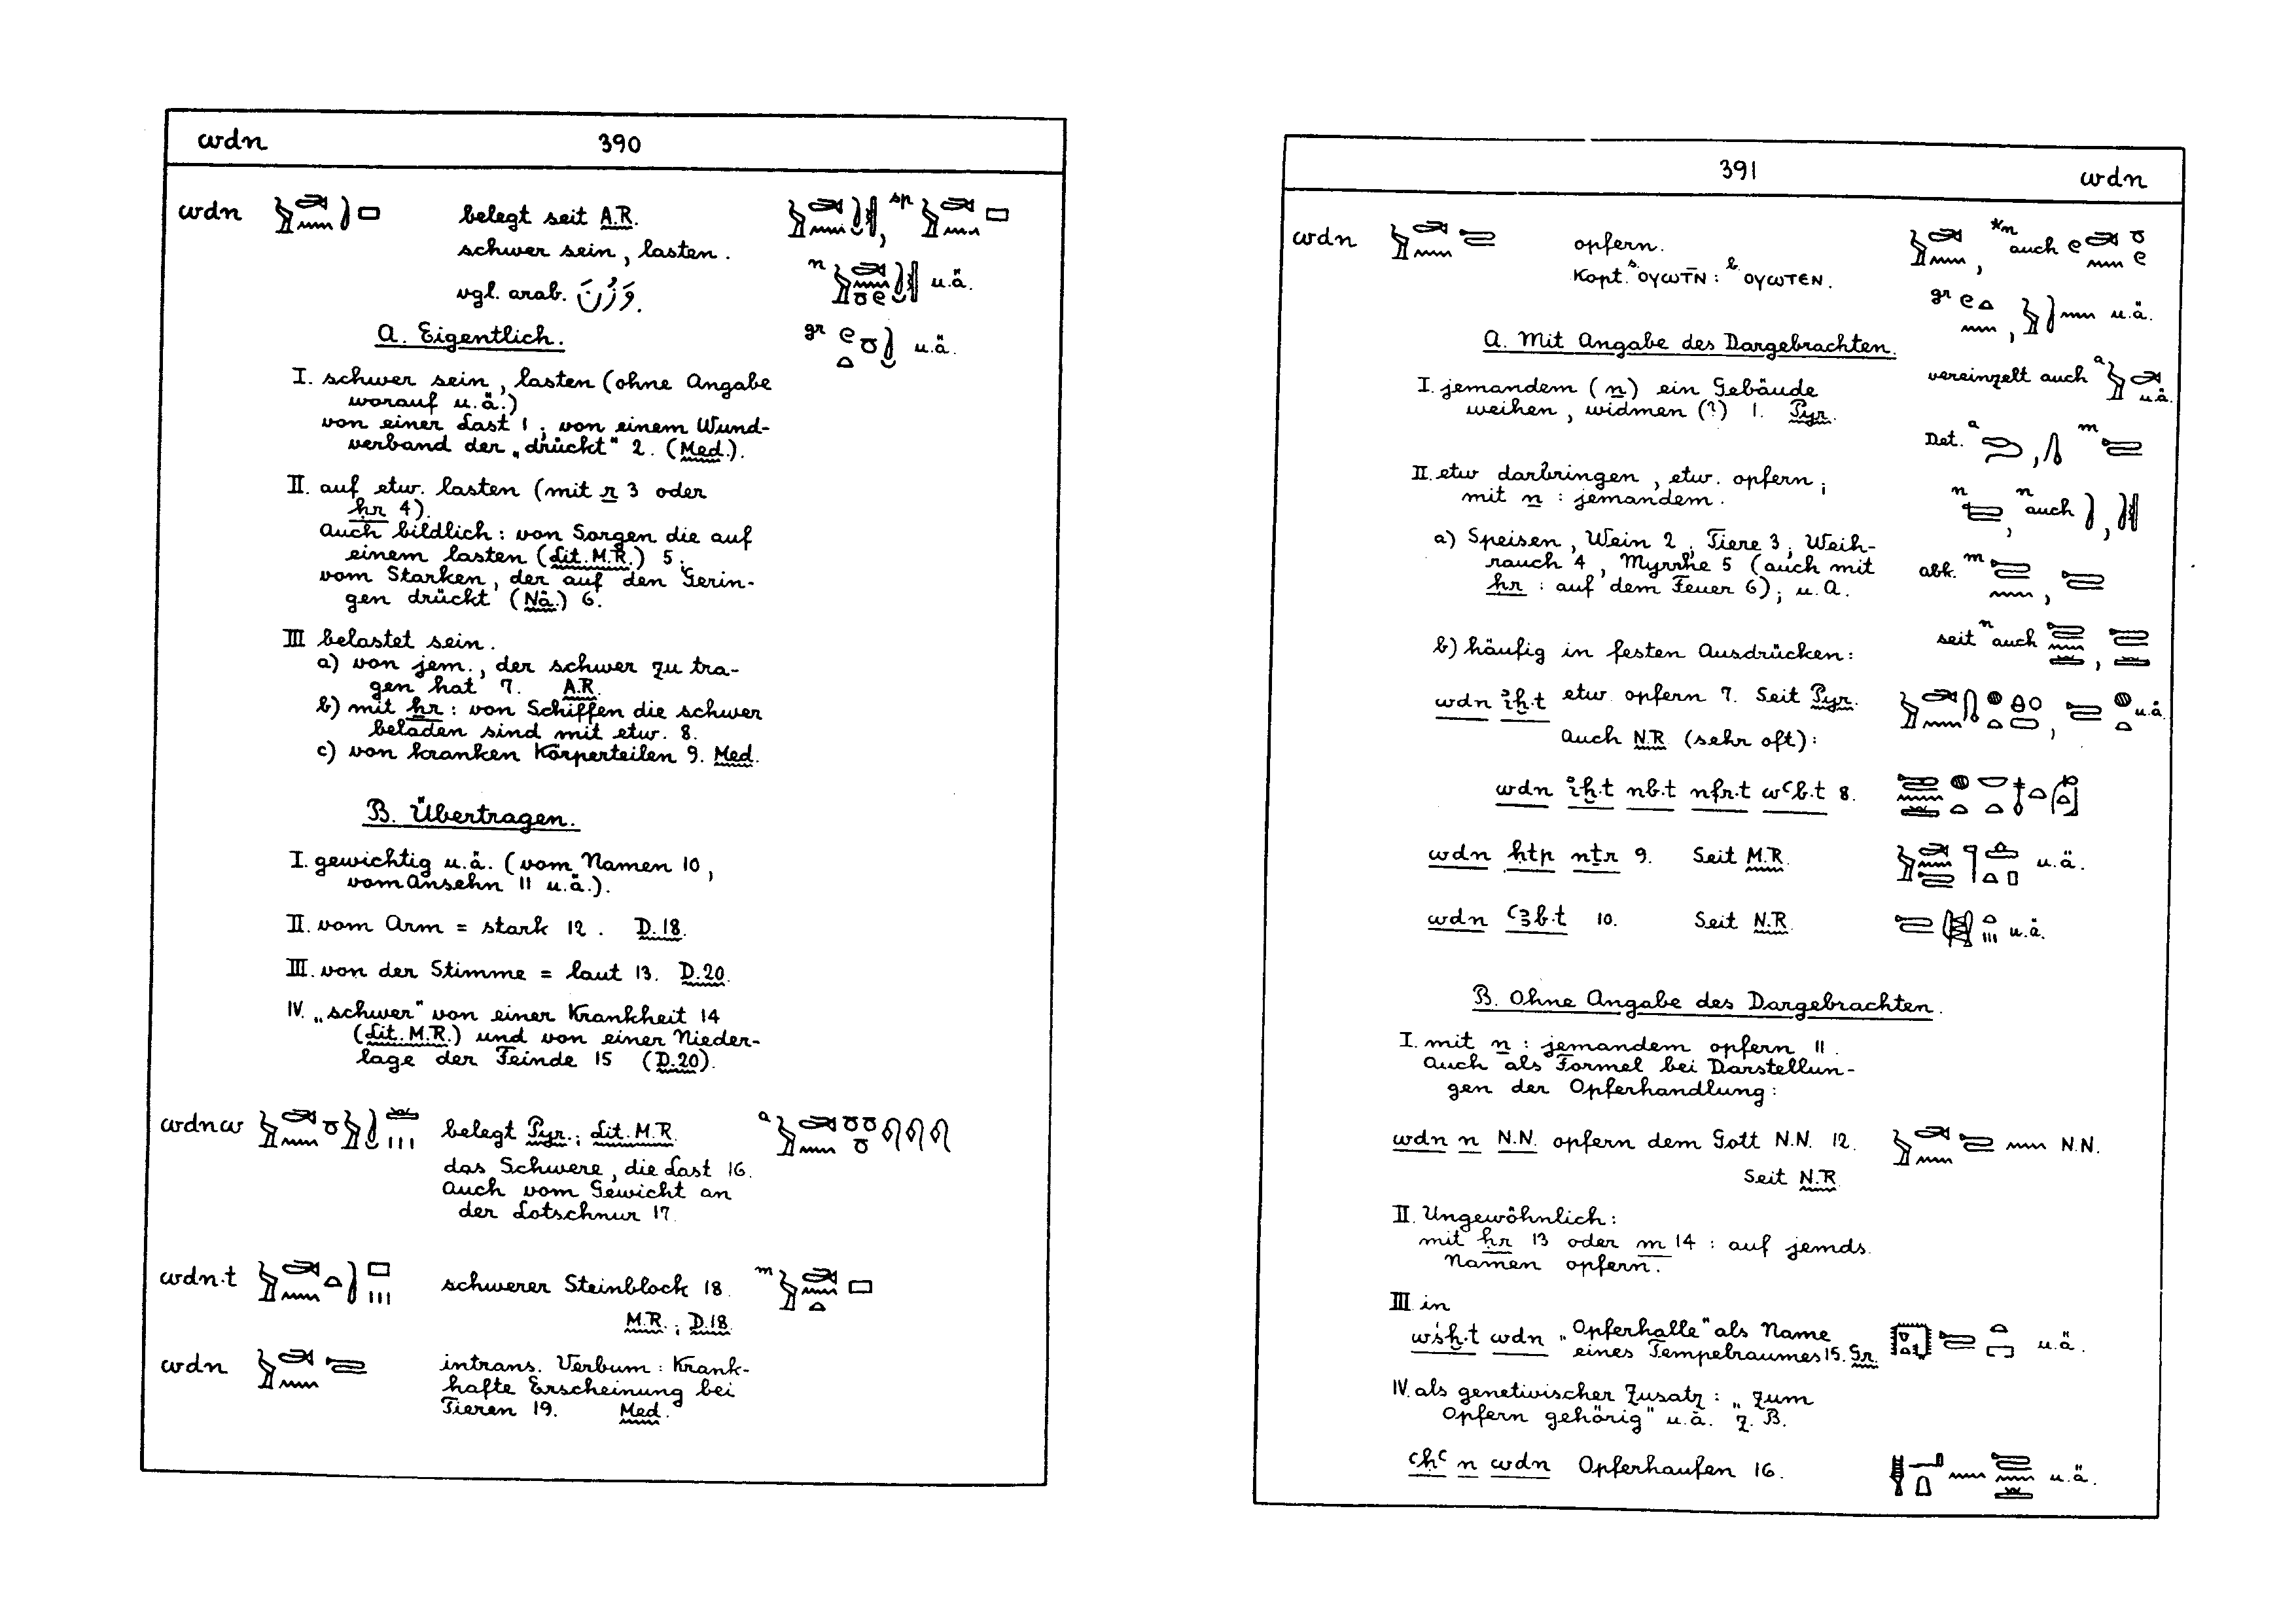 wdn 390
wdn belegt seit A.R.
schwer sein, lasten.
vgl. arab. وَزُنَ.
sp
n u.ä.
gr u.ä.
A. Eigentlich.
I. schwer sein, lasten (ohne Angabe
worauf u.ä.)
von einer Last 1; von einem Wund-
verband der „drückt“ 2. (Med.).
II. auf etw. lasten (mit r 3 oder
ḥr 4).
Auch bildlich: von Sorgen die auf
einem lasten (Lit. M.R.) 5;
vom Starken, der auf den Gerin-
gen drückt (Nä.) 6.
III belastet sein.
a) von jem., der schwer zu tra-
gen hat 7. A.R.
b) mit ḥr: von Schiffen die schwer
beladen sind mit etw. 8.
c) von kranken Körperteilen 9. Med.
B. Übertragen.
I. gewichtig u.ä. (vom Namen 10,
vom Ansehn 11 u.ä.).
II. vom Arm = stark 12. D.18.
III. von der Stimme = laut 13. D.20.
IV. „schwer“ von einer Krankheit 14
(Lit. M.R.) und von einer Nieder-
lage der Feinde 15 (D.20).
wdnw belegt Pyr.; Lit. M.R. a
das Schwere, die Last 16.
Auch vom Gewicht an
der Lotschnur 17.
wdn.t schwerer Steinblock 18. m
M.R.; D.18.
wdn intrans. Verbum: Krank-
hafte Erscheinung bei
Tieren 19. Med.
391 wdn
wdn opfern.
Kopt. s. ⲟⲩⲱⲧⲛ̄: b. ⲟⲩⲱⲧⲉⲛ.
*m auch
gr u.ä.
vereinzelt auch a u.ä.
Det. a m
n n auch
abk. m
seit n auch
A. Mit Angabe des Dargebrachten.
I. jemandem (n) ein Gebäude
weihen, widmen (?) 1. Pyr.
II. etw darbringen, etw. opfern;
mit n: jemandem.
a) Speisen, Wein 2; Tiere 3; Weih-
rauch 4, Myrrhe 5 (auch mit
ḥr: auf dem Feuer 6); u. A.
b) häufig in festen Ausdrücken:
wdn iḫ.t etw opfern 7. Seit Pyr. u.ä.
Auch N.R. (sehr oft):
wdn iḫ.t nb.t nfr.t wꜥb.t 8.
wdn ḥtp nṯr 9. Seit M.R. u.ä.
wdn ꜥꜣb.t 10. Seit N.R. u.ä.
B. Ohne Angabe des Dargebrachten.
I. mit n: jemandem opfern 11.
Auch als Formel bei Darstellun-
gen der Opferhandlung:
wdn n N.N. opfern dem Gott N.N. 12. N.N.
Seit N.R.
II. Ungewöhnlich:
mit ḥr 13 oder m 14: auf jemds.
Namen opfern.
III. in
wśḫ.t wdn „Opferhalle“ als Name
eines Tempelraumes 15. Gr. u.ä.
IV. als genetivischer Zusatz: „zum
Opfern gehörig“ u.ä. z.B.
ꜥḥꜥ n wdn Opferhaufen 16. u.ä.